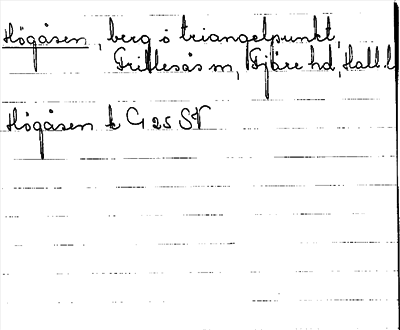 Högåsen, berg i triangelpunkt,
Frillesås sn, Fjäre hd, Hall. l
Högåsen k G 25 SV